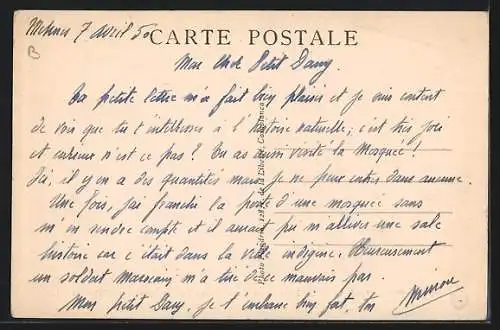 Meknes 7 avril 50
CARTE POSTALE
Mon cher Petit Dany.
Ta petite lettre m'a fait bien plaisir et je suis content
de voir que tu t'intéresses à l'histoire naturelle; c'est très joli
et curieux n'est ce pas? Tu as aussi visité la Mosquée!
Ici, il y en a des quantités mais je ne peux entrer dans aucune.
Une fois, j'ai franchi la porte d'une mosquée sans
m'en rendre compte et il aurait pu m'arriver une sale
histoire car c'était dans la ville indigène. Heureusement
un soldat Marocain m'a tiré de ce mauvais pas.
Mon petit Dany, je t'embrasse bien fort, ton
B